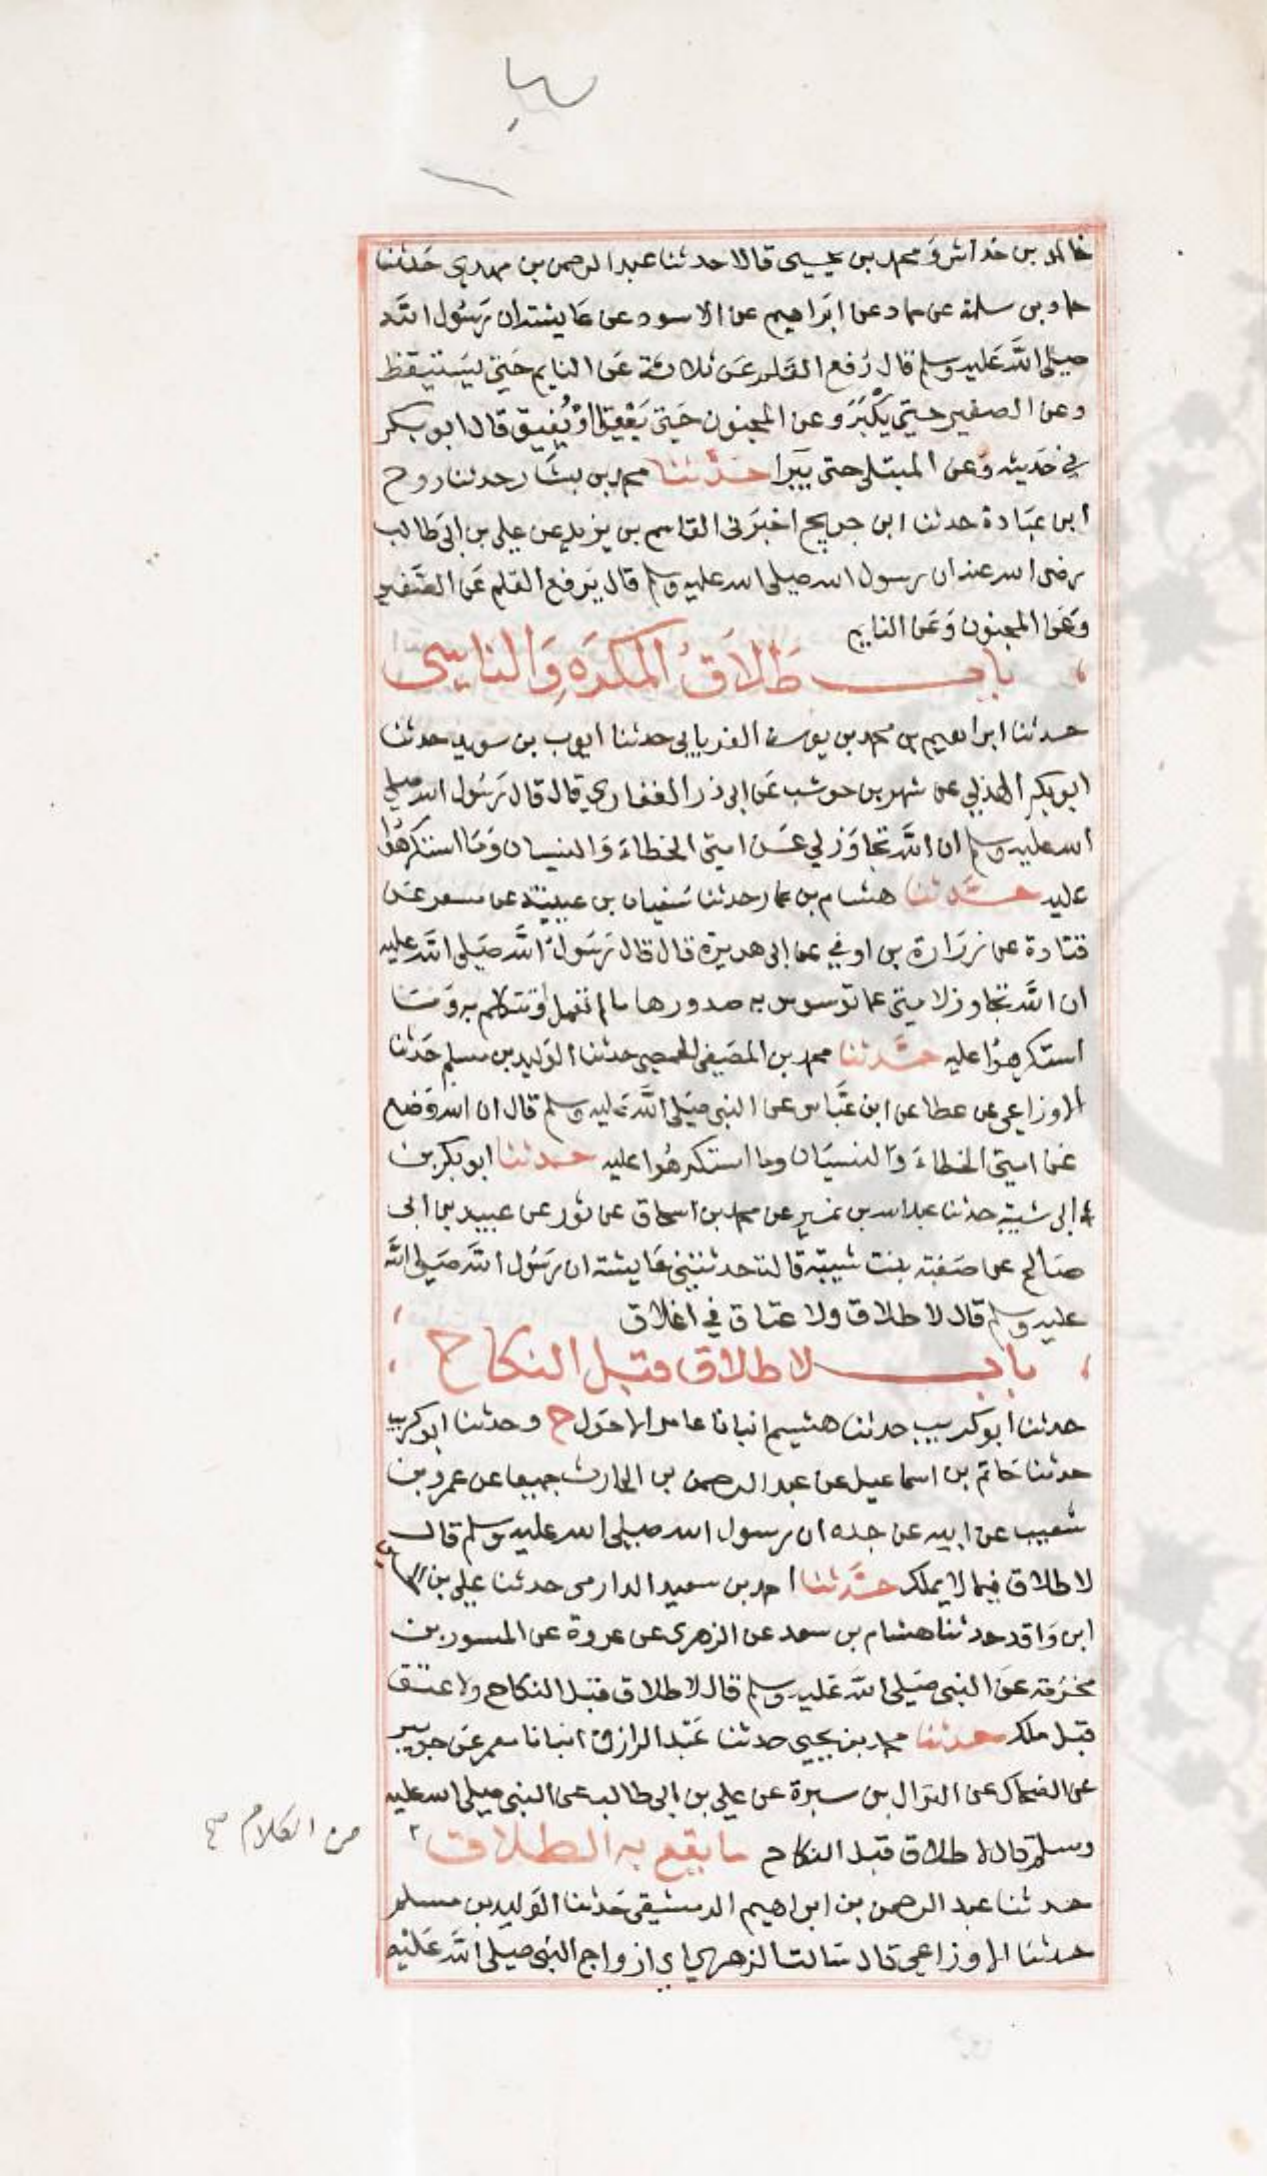 خالد بن خداش وَمحمد بن يحيى قالا حدثنا عبد الرحمن بن مهدي حَدثنا
حماد بن سلمة عن حماد عن ابَراهيم عن الاسود عن عَايشة ان رَسُول اللَّه
صَلى اللَّه عَليه وسلم قال رُفع القَلم عَن ثلاثة عَن النايم حَتى يَستيقظ
وعن الصغير حتى يَكْبَرَ وعن المجنون حَتى يَعْقِل اوْ يُفيق قال ابو بكر
في حَديثه وَعن المبتلى حتى يبَرا حَدَّثنا محمد بن بشَار حدثنا روح
ابن عبَادة حدثنا ابن جريج اخبرَنى القاسم بن يزيد عن علي بن ابى طالب
رضى الله عنه ان رسول الله صلى الله عليه وسلم قال يَرفع القلم عَن الصَّغير
وَعَن المجنون وَعَن النايم
باب طَلاَقُ المكرَهِ وَالناسِي
حدثنا ابراهيم بن محمد بن يوسف الفريابي حدثنا ايوب بن سويد حدثنا
ابو بكر الهذلي عن شهر بن حوشب عَن ابى ذر الغفاري قال قال رَسُول الله صلى
الله عليه وسلم ان اللَّه تجاوَز لي عَن امتى الخطاءَ وَالنسيان وَمَا استكرهُوا
عليه حَدَّثنا هشام بن عمار حدثنا سُفيان بن عيينة عن مسعر عَن
قتادة عن زرَارة بن اوفي عن ابى هريرة قال قال رَسُول اللَّه صَلى اللَّه عليه
ان اللَّه تجاوز لامتى عما توسوس به صدورها ما لم تعمل اوتتكلم به وَمَا
استكرهُوا عليه حَدَّثنا محمد بن المصَفى الحمصى حدثنا الوَليد بن مسلم حَدثنا
الاوزاعى عن عطا عن ابن عبَّاس عن النبى صَلى اللَّه عَليه وسلم قال ان الله وَضع
عَن امتى الخطاءَ وَالنسيَان وما استكرهُوا عليه حَدثنا ابو بكر بن
ابى شيبة حدثنا عبد الله بن نمَير عن محمد بن اسحاق عن ثور عن عبيد بن ابى
صَالح عن صَفية بنت شيبَة قالت حدثتنى عَايشة ان رَسُول اللَّه صَلى اللَّه
عليه وسلم قال لا طلاق ولا عتاق في اغلاق
باب لا طلاق قبل النكاح
حدثنا ابو كريب حدثنا هشيم انبانا عامر الاحَول ح وحدثنا ابو كريب
حدثنا حَاتم بن اسماعيل عن عبد الرحمن بن الحارث جميعا عن عمرو بن
شعيب عن ابيه عن جده ان رسول الله صلى الله عليه وسلم قال
لا طلاق فيما لا يملك حَدَّثنا احمد بن سعيد الدارمى حدثنا علي بن الحسين
ابن وَاقد حدثنا هشام بن سعد عن الزهرى عن عروة عن المسور بن
مخرَمة عَن النبى صَلى اللَّه عَليه وسلم قال لا طلاق قبل النكاح ولا عتق
قبل ملك حدثنا محمد بن يحيى حدثنا عَبْد الرازق انبانا معمر عَن جويبر
عن الضحاك عن النزال بن سبرة عن علي بن ابى طالب عن النبى صلى الله عليه
وسلم قال لا طلاق قبل النكاح ما يقع به الطلاق
من الكلام صح
حدثنا عبد الرحمن بن ابراهيم الدمشقى حَدثنا الوَليد بن مسلم
حدثنا الاوزاعى قال سَالت الزهري اي ازواج النبى صلى اللَّه عَليْه